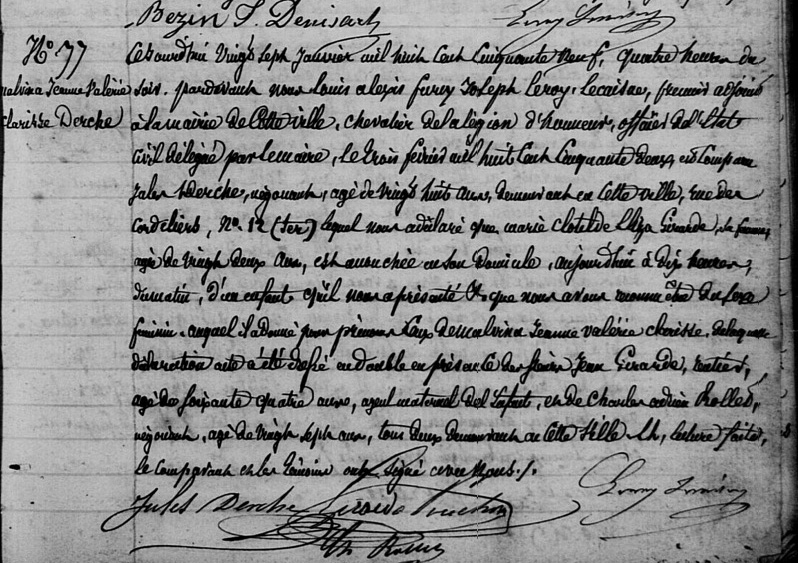 Bezin S. Denisart
N° 77
Malvina Jeanne Valérie
Clarisse Derche
Cejourd'hui Vingt Sept Janvier mil huit Cent Cinquante Neuf, quatre heures du
soir. pardevant nous Louis alexis fursy Joseph Leroy-Lecaisne, premier adjoint
à la mairie de Cette ville, chevalier de la légion d'honneur, officier de l'état
civil délégué par le maire, Le trois février mil huit Cent Cinquante deux, est Comparu
Jules Derche, négociant, agé de Vingt huit ans, demeurant en Cette Ville, rue des
Cordeliers, No. 12 (ter) lequel nous a déclaré que marie Clotilde Eliza Girarde, sa femme,
agée de vingt deux ans, est accouchée en son Domicile, aujourd'hui à dix heures,
du matin, d'un enfant qu'il nous a présenté Et que nous avons reconnu être du sexe
féminin. auquel il a donné pour prénoms Ceux de malvina Jeanne valérie clarisse. de laquelle
déclaration acte a été dressé en double en présence des sieurs Jean Girarde, rentier,
agé de soixante quatre ans, ayeul maternel de l'Enfant, et de Charles Rolle,
négociant, agé de Vingt Sept ans, tous deux demeurant en Cette Ville. Et, lecture faite,
le Comparant et les témoins ont Signé avec Nous./.
Jules Derche Girarde
Ch